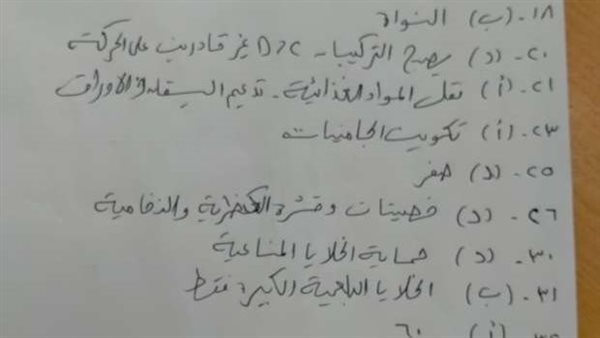 ١٨.(ب) النواة
٢٠.(د) يصبح التركيبا- D،C غير قادرين على الحركة
٢١.(أ) نقل المواد الغذائية. تدعيم السيقان والأوراق
٢٣.(أ) تكوين الجاميتات
٢٥.(د) صفر
٢٦.(د) خصيتان وقشرة الكظرية والنخامية
٣٠.(د) حماية الخلايا المناعية
٣١.(ب) الخلايا البلعمية الكبيرة فقط
(أ) ٦٠